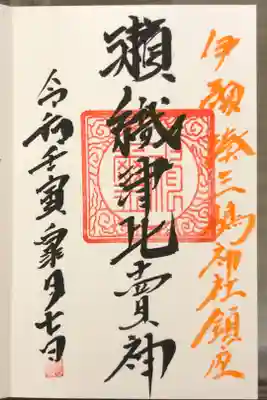 三嶋神社鎮座
瀬織津比賣神
令和壬寅皐月七日